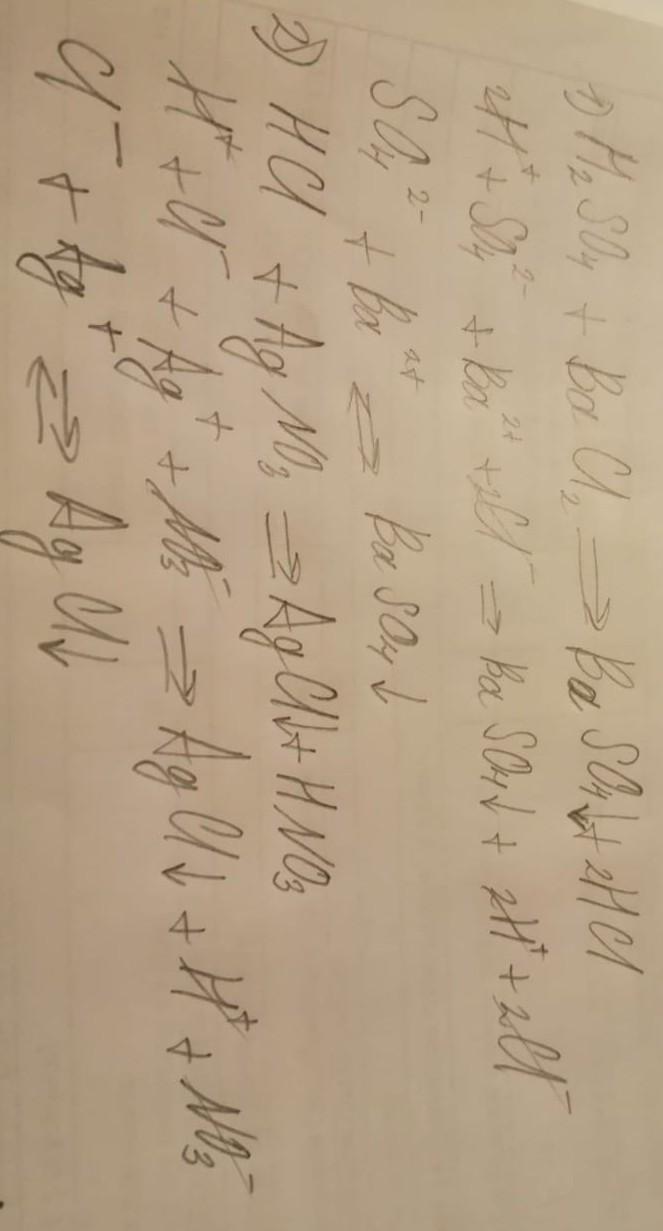 1) H₂SO₄ + BaCl₂ ⇒ BaSO₄↓ + 2HCl
2H⁺ + SO₄²⁻ + Ba²⁺ + 2Cl⁻ ⇒ BaSO₄↓ + 2H⁺ + 2Cl⁻
SO₄²⁻ + Ba²⁺ ⇒ BaSO₄↓
2) HCl + AgNO₃ ⇒ AgCl↓ + HNO₃
H⁺ + Cl⁻ + Ag⁺ + NO₃⁻ ⇒ AgCl↓ + H⁺ + NO₃⁻
Cl⁻ + Ag⁺ ⇒ AgCl↓